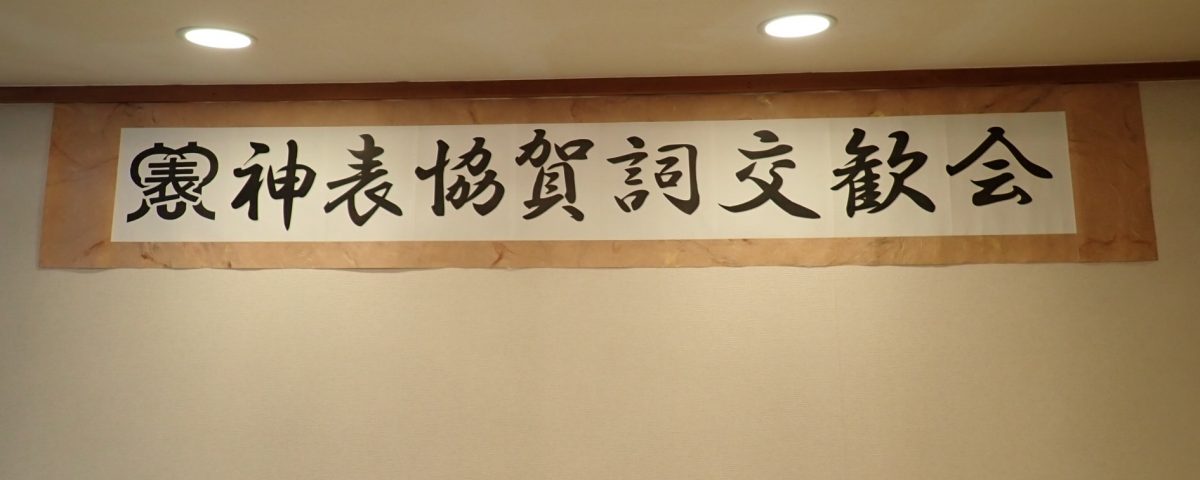 神表協賀詞交歓会